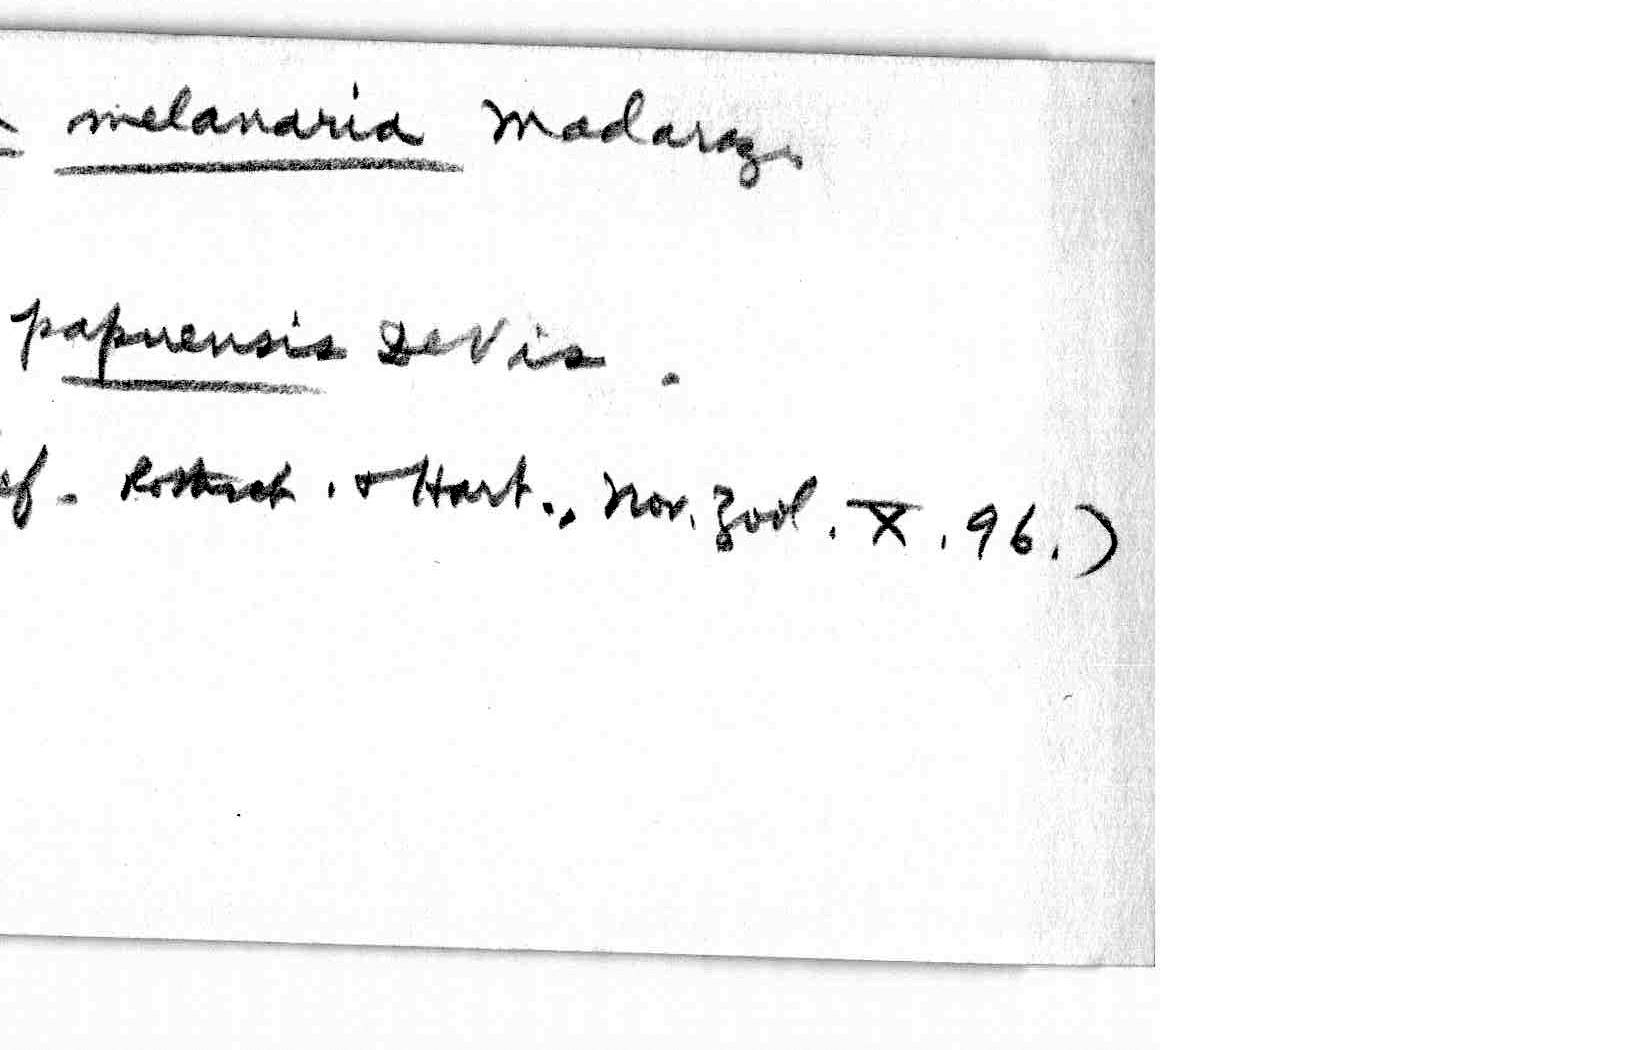 melanaria Madarasz.
papuensis DeVis.
cf. Rothsch. & Hart., Nov. Zool. X. 96.)